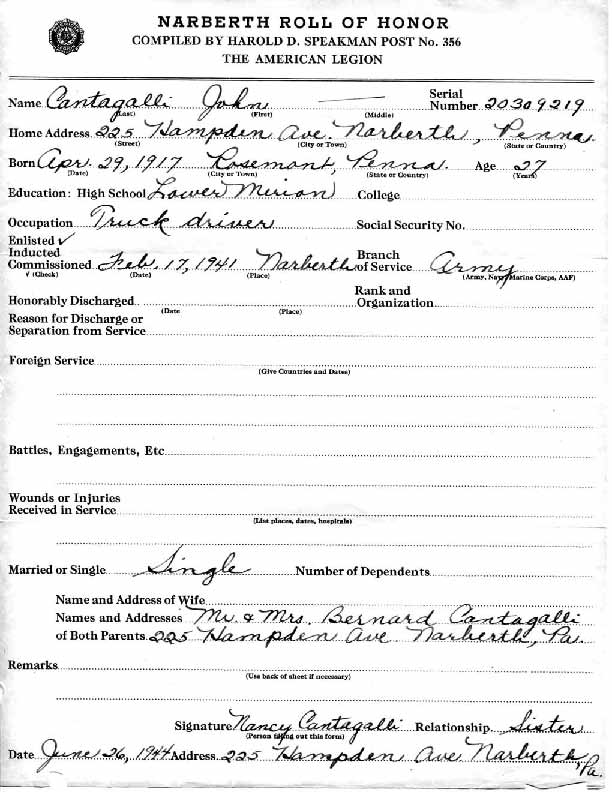 NARBERTH ROLL OF HONOR
COMPILED BY HAROLD D. SPEAKMAN POST No. 356
THE AMERICAN LEGION
Name Cantagalli John — Serial Number 20309219
(Last) (First) (Middle)
Home Address 225 Hampden Ave. Narberth, Penna.
(Street) (City or Town) (State or Country)
Born Apr. 29, 1917 Rosemont, Penna. Age 27
(Date) (City or Town) (State or Country) (Years)
Education: High School Lower Merion College
Occupation Truck driver Social Security No.
Enlisted ✓
Inducted
Commissioned Feb. 17, 1941 Narberth Branch of Service Army
√ (Check) (Date) (Place) (Army, Navy, Marine Corps, AAF)
Honorably Discharged Rank and Organization
(Date (Place)
Reason for Discharge or
Separation from Service
Foreign Service
(Give Countries and Dates)
Battles, Engagements, Etc
Wounds or Injuries
Received in Service
(List places, dates, hospitals)
Married or Single Single Number of Dependents
Name and Address of Wife
Names and Addresses Mr. & Mrs. Bernard Cantagalli
of Both Parents 225 Hampden Ave Narberth, Pa
Remarks
(Use back of sheet if necessary)
Signature Nancy Cantagalli Relationship Sister
(Person filling out this form)
Date June 26, 1944 Address 225 Hampden Ave Narberth, Pa.